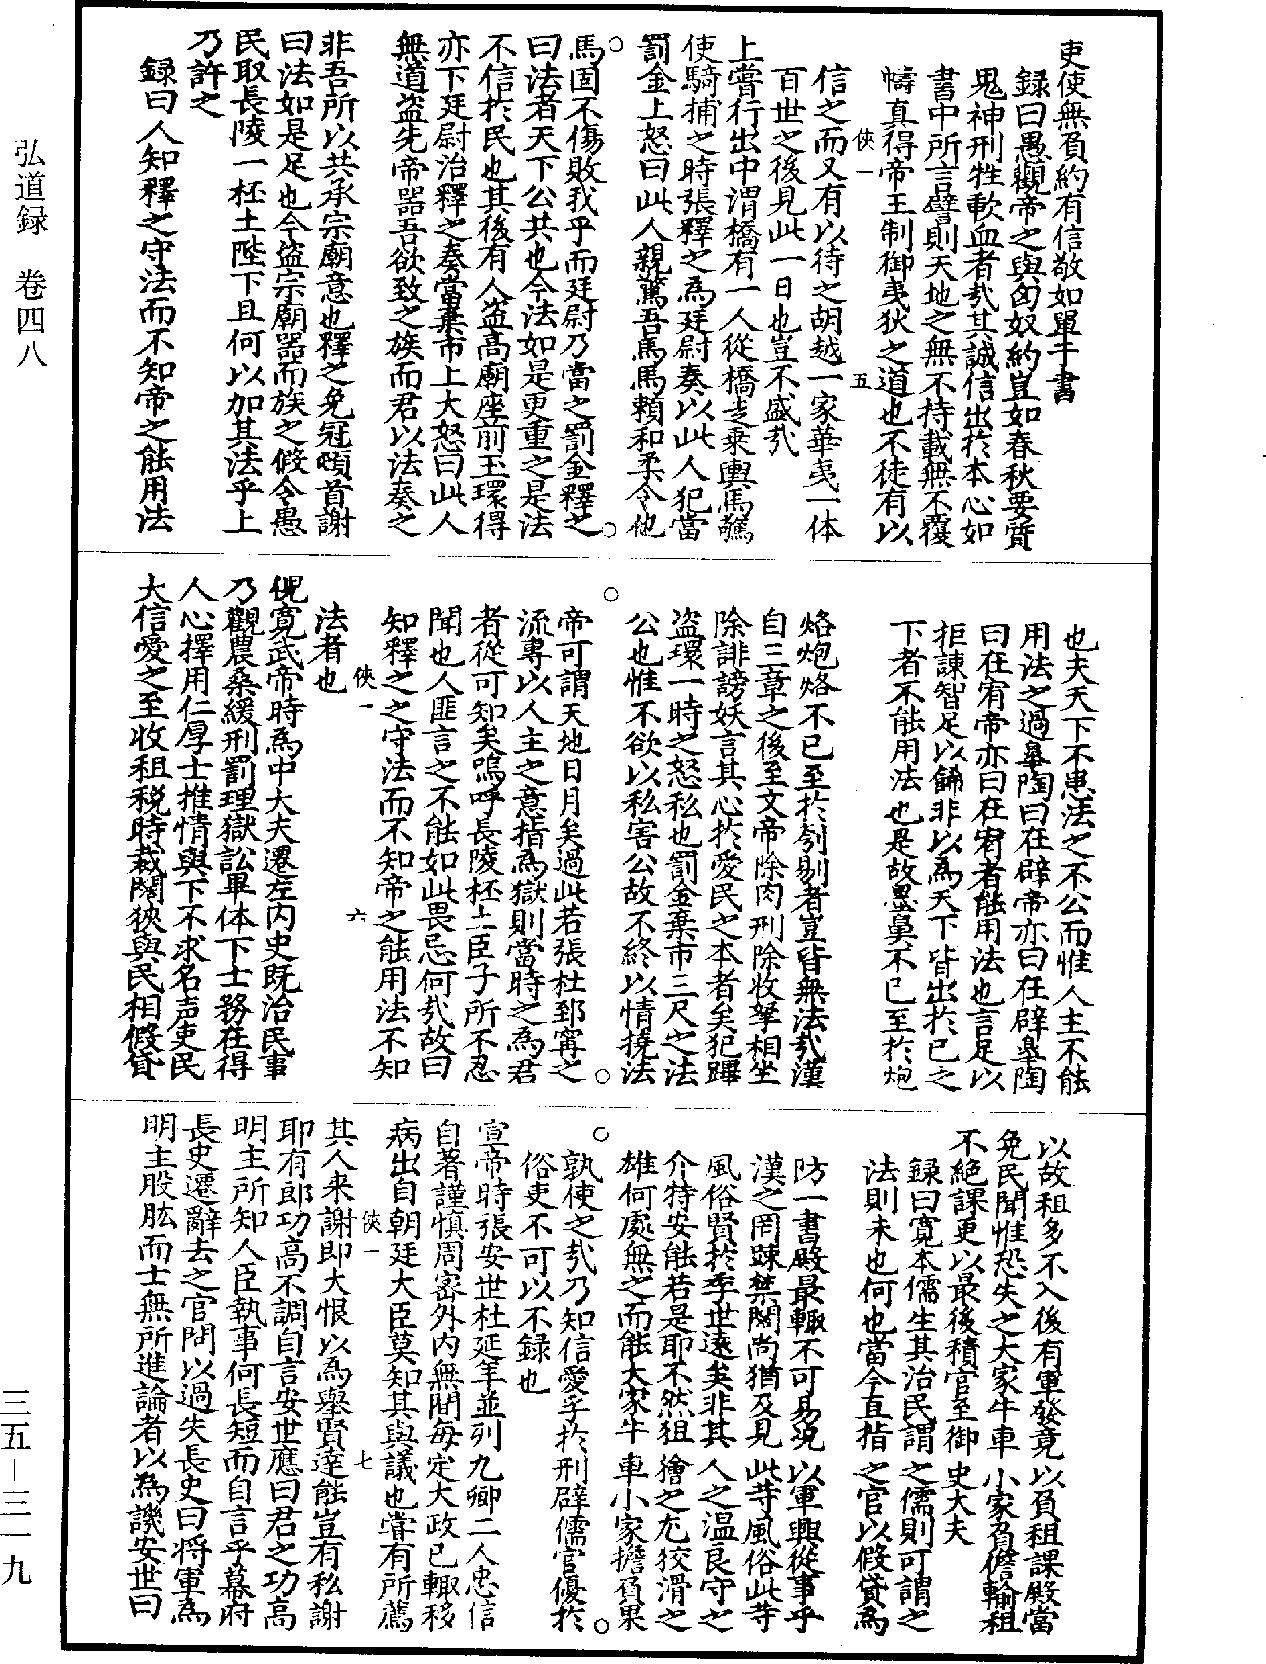 弘道録　卷四八
三五—三一九
吏使無負約有信敬如單于書
録曰愚觀帝之與匈奴約豈如春秋要質
鬼神刑牲歃血者㢤其誠信出於本心如
書中所言譬則天地之無不持載無不覆
幬真得帝王制御夷狄之道也不徒有以
俠一　五
信之而又有以待之胡越一家華夷一体
百世之後見此一日也豈不盛㢤
上嘗行出中渭橋有一人從橋走乗輿馬驚
使騎捕之時張釋之為廷尉奏以此人犯當
罰金上怒曰此人親驚吾馬馬賴和柔令他
馬固不傷敗我乎而廷尉乃當之罰金釋之
曰法者天下公共也今法如是更重之是法
不信於民也其後有人盗高廟座前玉環得
亦下廷尉治釋之奏當棄市上大怒曰此人
無道盗先帝器吾欲致之族而君以法奏之
非吾所以共承宗廟意也釋之免冠頓首謝
曰法如是足也今盗宗廟器而族之假令愚
民取長陵一抔土陛下且何以加其法乎上
乃許之
録曰人知釋之守法而不知帝之能用法
也夫天下不患法之不公而惟人主不能
用法之過皋陶曰在辟帝亦曰在辟皋陶
曰在宥帝亦曰在宥者能用法也言足以
拒諫智足以飾非以為天下皆出於已之
下者不能用法也是故墨鼻不已至於炮
烙炮烙不已至於刳剔者豈皆無法㢤漢
自三章之後至文帝除肉刑除收孥相坐
除誹謗妖言其心於愛民之本者矣犯蹕
盗環一時之怒私也罰金棄市三尺之法
公也惟不欲以私害公故不終以情撓法
帝可謂天地日月矣過此若張杜郅甯之
流專以人主之意指為獄則當時之為君
者從可知矣嗚呼長陵抔土臣子所不忍
聞也人匪言之不能如此畏忌何㢤故曰
知釋之之守法而不知帝之能用法不知
俠一　六
法者也
倪寬武帝時為中大夫遷左内史既治民事
乃觀農桑緩刑罰理獄訟卑体下士務在得
人心擇用仁厚士推情與下不求名声吏民
大信愛之至收租税時裁闊狹與民相假貸
以故租多不入後有軍發竟以負租課殿當
免民聞惟恐失之大家牛車小家負儋輸租
不絕課更以最後積官至御史大夫
録曰寬本儒生其治民謂之儒則可謂之
法則未也何也當今直指之官以假貸為
防一書殿最輙不可易况以軍興從事乎
漢之罔踈禁闊尚猶及見此䓁風俗此䓁
風俗賢於季世遠矣非其人之温良守之
介特安能若是耶不然狙獪之尤狡滑之
雄何處無之而能大家牛車小家擔負果
孰使之㢤乃知信愛孚於刑辟儒官優於
俗吏不可以不録也
宣帝時張安世杜延年並列九卿二人忠信
自著謹慎周密外内無間每定大政已輙移
病出自朝廷大臣莫知其與議也嘗有所薦
俠一　七
其人来謝即大恨以為舉賢達能豈有私謝
耶有郎功高不調自言安世應曰君之功高
明主所知人臣執事何長短而自言乎幕府
長史遷辭去之官問以過失長史曰将軍為
明主股肱而士無所進論者以為譏安世曰